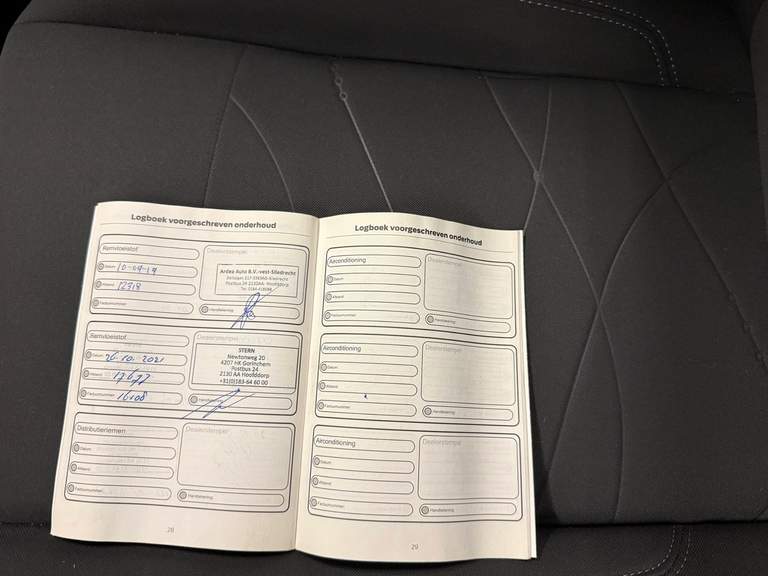 Logboek voorgeschreven onderhoud
Remvloeistof
Dealerstempel
Datum 10-09-19
Afstand 12318
Factuurnummer
Ardea Auto B.V.-vest-Sliedrecht
Postbus 24 2130AA Hoofddorp
Handtekening
Remvloeistof
Dealerstempel
Datum 26-10-2021
Afstand 17677
Factuurnummer 16108
STERN
Newtonweg 20
4207 HK Gorinchem
Postbus 24
2130 AA Hoofddorp
+31(0)183-64 60 00
Handtekening
Distributieriemen
Dealerstempel
Datum
Afstand
Factuurnummer
Handtekening
28
Logboek voorgeschreven onderhoud
Airconditioning
Dealerstempel
Datum
Afstand
Factuurnummer
Handtekening
Airconditioning
Dealerstempel
Datum
Afstand
Factuurnummer
Handtekening
Airconditioning
Dealerstempel
Datum
Afstand
Factuurnummer
Handtekening
29